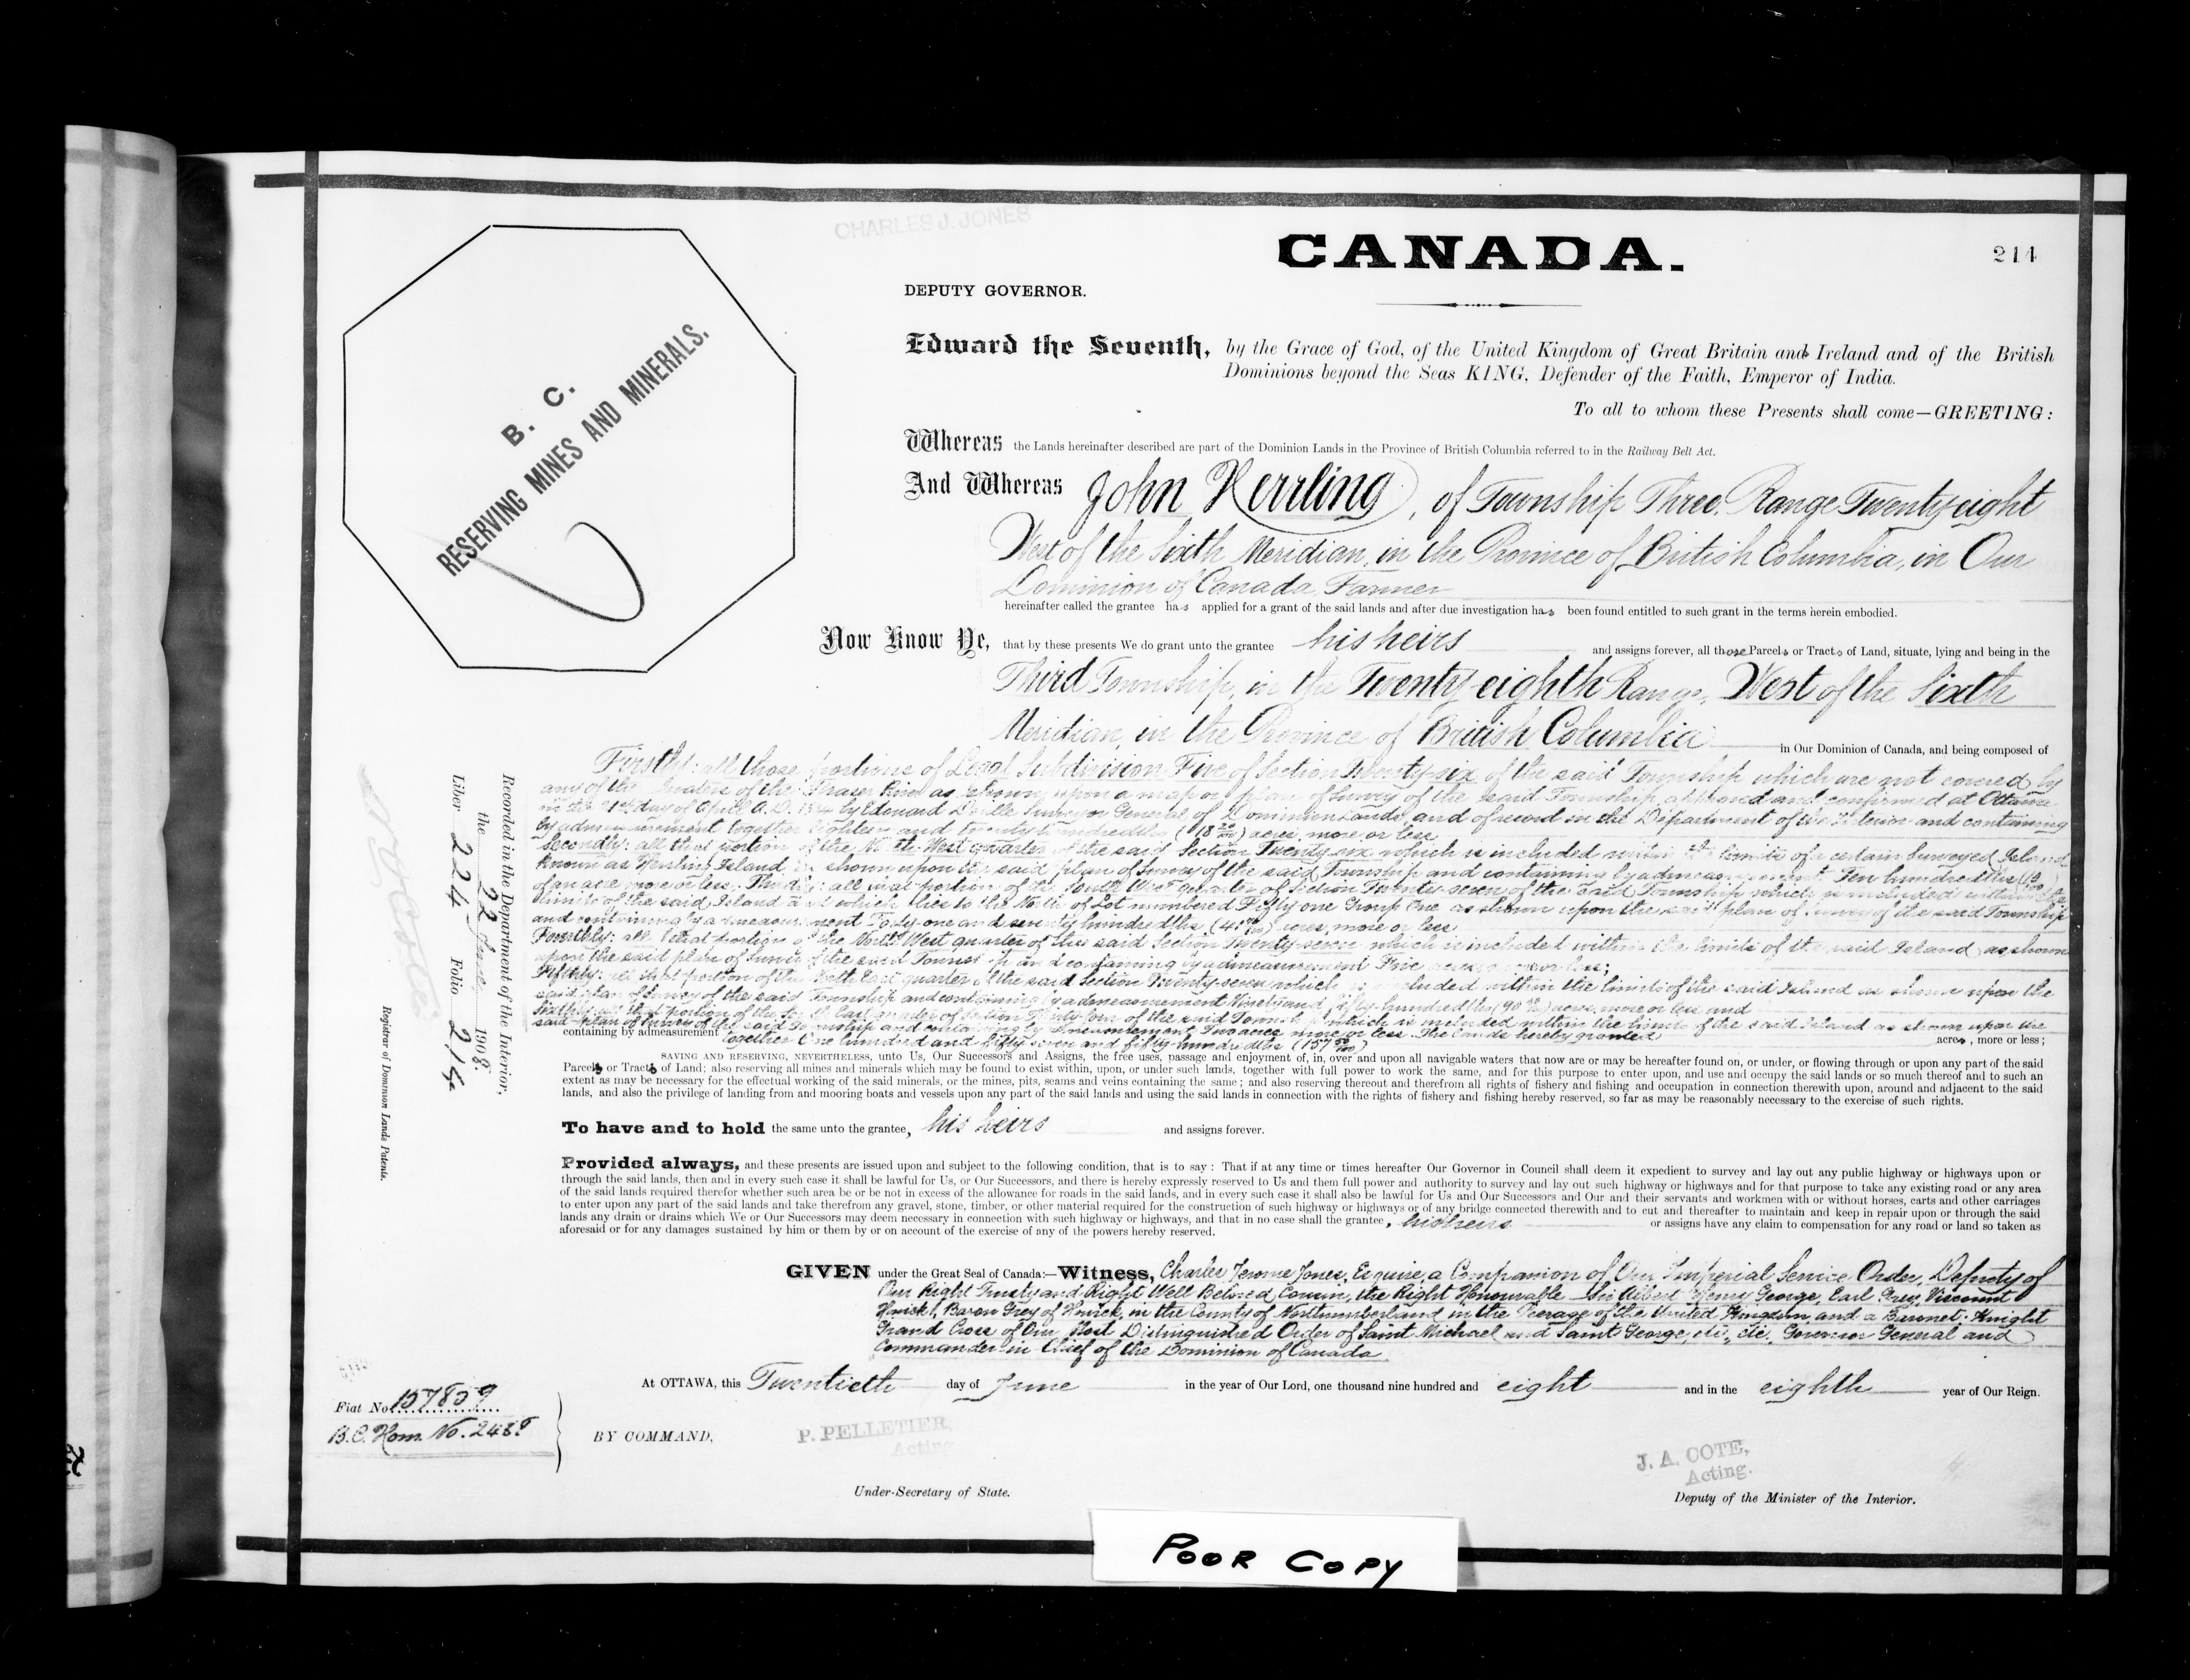 CHARLES J. JONES
CANADA.
214
DEPUTY GOVERNOR.
Edward the Seventh, by the Grace of God, of the United Kingdom of Great Britain and Ireland and of the British
Dominions beyond the Seas KING, Defender of the Faith, Emperor of India.
To all to whom these Presents shall come—GREETING:
B. C.
RESERVING MINES AND MINERALS.
Whereas the Lands hereinafter described are part of the Dominion Lands in the Province of British Columbia referred to in the Railway Belt Act.
And Whereas John , of Township Three, Range Twenty eight
West of the Sixth Meridian, in the Province of British Columbia, in Our
Dominion of Canada, Farmer
hereinafter called the grantee has applied for a grant of the said lands and after due investigation has been found entitled to such grant in the terms herein embodied.
Now Know Ye, that by these presents We do grant unto the grantee his heirs and assigns forever, all those Parcels or Tracts of Land, situate, lying and being in the
Third Township, in the Twenty eighth Range, West of the Sixth
Meridian, in the Province of British Columbia in Our Dominion of Canada, and being composed of
Firstly: all those portions of Legal Subdivision Five of Section Twenty-six of the said Township which are not covered by
any of the waters of the Fraser River as shown upon a map or plan of Survey of the said Township approved and confirmed at Ottawa
day of April A.D. by Edouard Deville Surveyor General of Dominion Lands, and of record in the Department of the Interior and containing
by admeasurement together Eighteen and twenty hundredths (18 20/100) acres, more or less
Secondly: all that portion of the North West quarter of the said Section Twenty-six which is included within the limits of a certain Surveyed Island
known as Island as shown upon the said plan of Survey of the said Township and containing by admeasurement Ten hundredths (10/100)
of an acre more or less; Thirdly: all that portion of the South West quarter of Section Twenty-seven of the said Township which is included within the
limits of the said Island and which lies to the North of Lot numbered Fifty one Group One as shown upon the said plan of Survey of the said Township
and containing by admeasurement Forty-one and seventy hundredths (41 70/100) acres, more or less
Fourthly: all that portion of the North West quarter of the said Section Twenty-seven which is included within the limits of the said Island as shown
upon the said plan of Survey of the said Township and containing by admeasurement Five acres more or less;
Fifthly: all that portion of the quarter of the said Section Twenty-seven which is included within the limits of the said Island as shown upon the
said plan of Survey of the said Township and containing by admeasurement Ninety and fifty-hundredths (90 50/100) acres, more or less and
Sixthly: all that portion of the South East quarter of Section Thirty four of the said Township which is included within the limits of the said Island as shown upon the
said plan of Survey of the said Township and containing by admeasurement Two acres more or less. The Lands hereby granted
containing by admeasurement together One hundred and fifty seven and fifty-hundredths (157 50/100) acres, more or less;
SAVING AND RESERVING, NEVERTHELESS, unto Us, Our Successors and Assigns, the free uses, passage and enjoyment of, in, over and upon all navigable waters that now are or may be hereafter found on, or under, or flowing through or upon any part of the said
Parcels or Tracts of Land; also reserving all mines and minerals which may be found to exist within, upon, or under such lands, together with full power to work the same, and for this purpose to enter upon, and use and occupy the said lands or so much thereof and to such an
extent as may be necessary for the effectual working of the said minerals, or the mines, pits, seams and veins containing the same; and also reserving thereout and therefrom all rights of fishery and fishing and occupation in connection therewith upon, around and adjacent to the said
lands, and also the privilege of landing from and mooring boats and vessels upon any part of the said lands and using the said lands in connection with the rights of fishery and fishing hereby reserved, so far as may be reasonably necessary to the exercise of such rights.
To have and to hold the same unto the grantee, his heirs and assigns forever.
Provided always, and these presents are issued upon and subject to the following condition, that is to say: That if at any time or times hereafter Our Governor in Council shall deem it expedient to survey and lay out any public highway or highways upon or
through the said lands, then and in every such case it shall be lawful for Us, or Our Successors, and there is hereby expressly reserved to Us and them full power and authority to survey and lay out such highway or highways and for that purpose to take any existing road or any area
of the said lands required therefor whether such area be or be not in excess of the allowance for roads in the said lands, and in every such case it shall also be lawful for Us and Our Successors and Our and their servants and workmen with or without horses, carts and other carriages
to enter upon any part of the said lands and take therefrom any gravel, stone, timber, or other material required for the construction of such highway or highways or of any bridge connected therewith and to cut and thereafter to maintain and keep in repair upon or through the said
lands any drain or drains which We or Our Successors may deem necessary in connection with such highway or highways, and that in no case shall the grantee, his heirs or assigns have any claim to compensation for any road or land so taken as
aforesaid or for any damages sustained by him or them by or on account of the exercise of any of the powers hereby reserved.
GIVEN under the Great Seal of Canada:—Witness, Charles Jerome Jones, Esquire, a Companion of Our Imperial Service Order, Deputy of
Our Right Trusty and Right Well Beloved Cousin, the Right Honourable Sir Albert Henry George, Earl Grey, Viscount
Howick, Baron Grey of Howick, in the County of Northumberland in the Peerage of the United Kingdom and a Baronet: Knight
Grand Cross of Our Most Distinguished Order of Saint Michael and Saint George, etc., etc. Governor General and
Commander-in-Chief of the Dominion of Canada.
At OTTAWA, this Twentieth day of June in the year of Our Lord, one thousand nine hundred and eight and in the eighth year of Our Reign.
BY COMMAND,
P. PELLETIER,
Acting
Under-Secretary of State.
J. A. COTE,
Acting.
Deputy of the Minister of the Interior.
Recorded in the Department of the Interior,
the 22 1908.
Liber 224 Folio 214
Registrar of Dominion Lands Patents.
Fiat No. 157859
B.C. Hom. No. 2488
POOR COPY